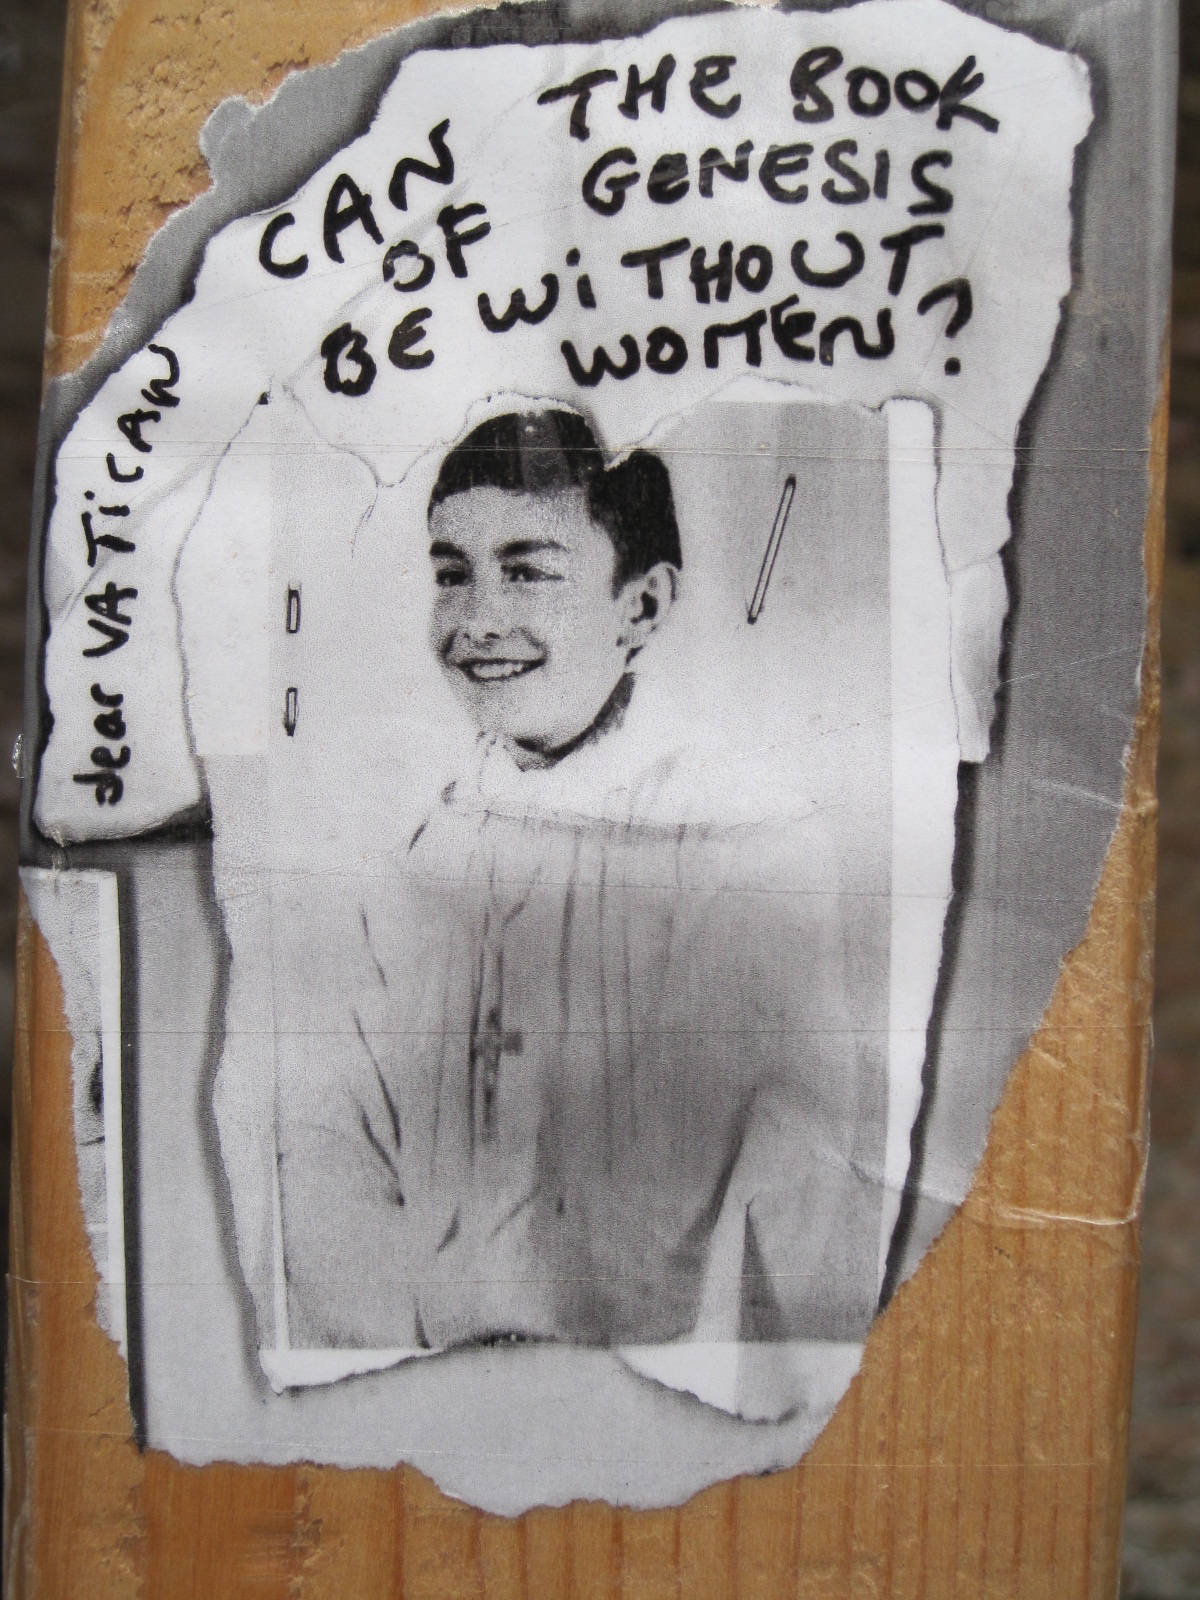 dear VATiCAN
CAN THE BOOK
OF GENESIS
BE WiTHOUT
WOMEN?